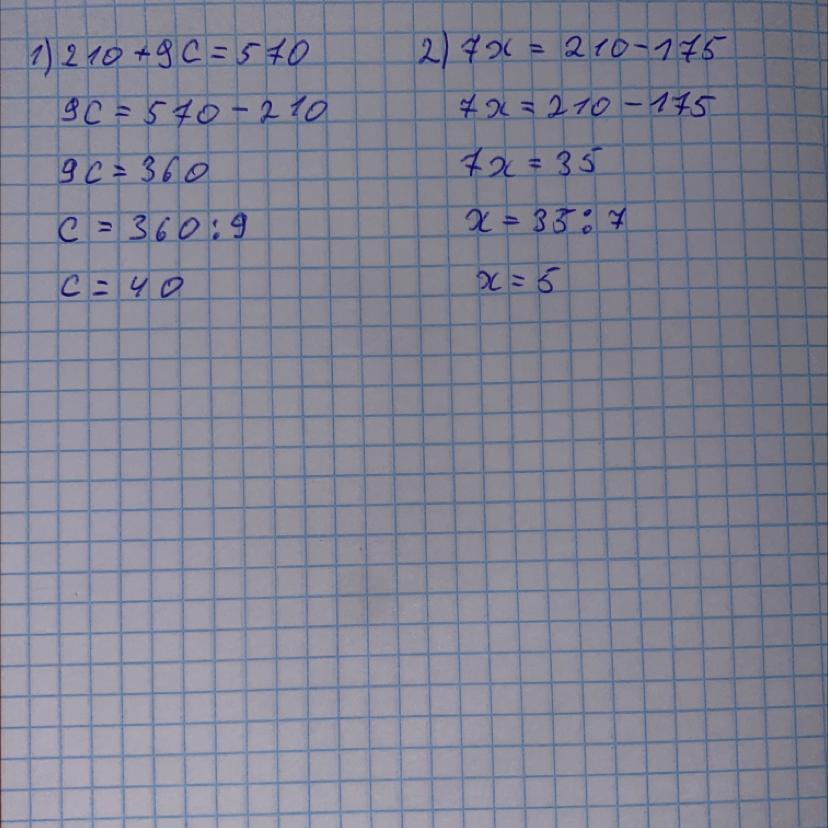 1) 210 + 9c = 570
9c = 570 - 210
9c = 360
c = 360 : 9
c = 40
2) 7x = 210 - 175
7x = 210 - 175
7x = 35
x = 35 : 7
x = 5